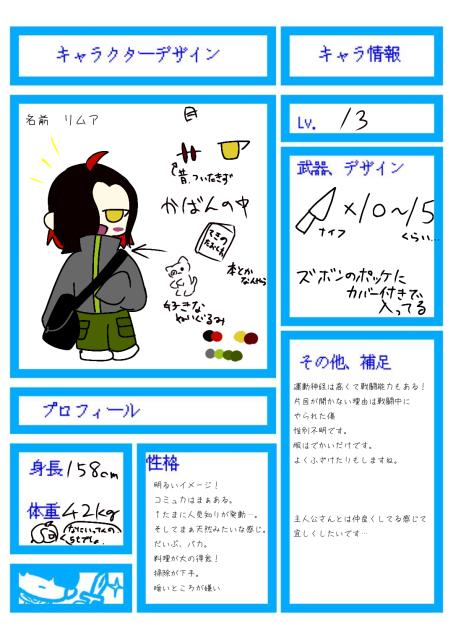 キャラクターデザイン
キャラ情報
名前 リムア
目
昔、ついたきず
かばんの中
てきの
たおしかた
本とか
なんやら
好きな
ぬいぐるみ
Lv. 13
武器、デザイン
×10〜15
ナイフ
くらい…
ズボンのポッケに
カバー付きで
入ってる
プロフィール
身長 158cm
体重 42kg
性格
明るいイメージ！
コミュ力はまぁある。
↑たまに人見知りが発動…。
そしてまぁ天然みたいな感じ。
だいぶ、バカ。
料理が大の得意！
掃除が下手。
暗いところが嫌い
その他、補足
運動神経は高くて戦闘能力もある！
片目が開かない理由は戦闘中に
やられた傷
性別不明です。
服はでかいだけです。
よくふざけたりもしますね。
主人公さんとは仲良くしてる感じで
宜しくしたいです…